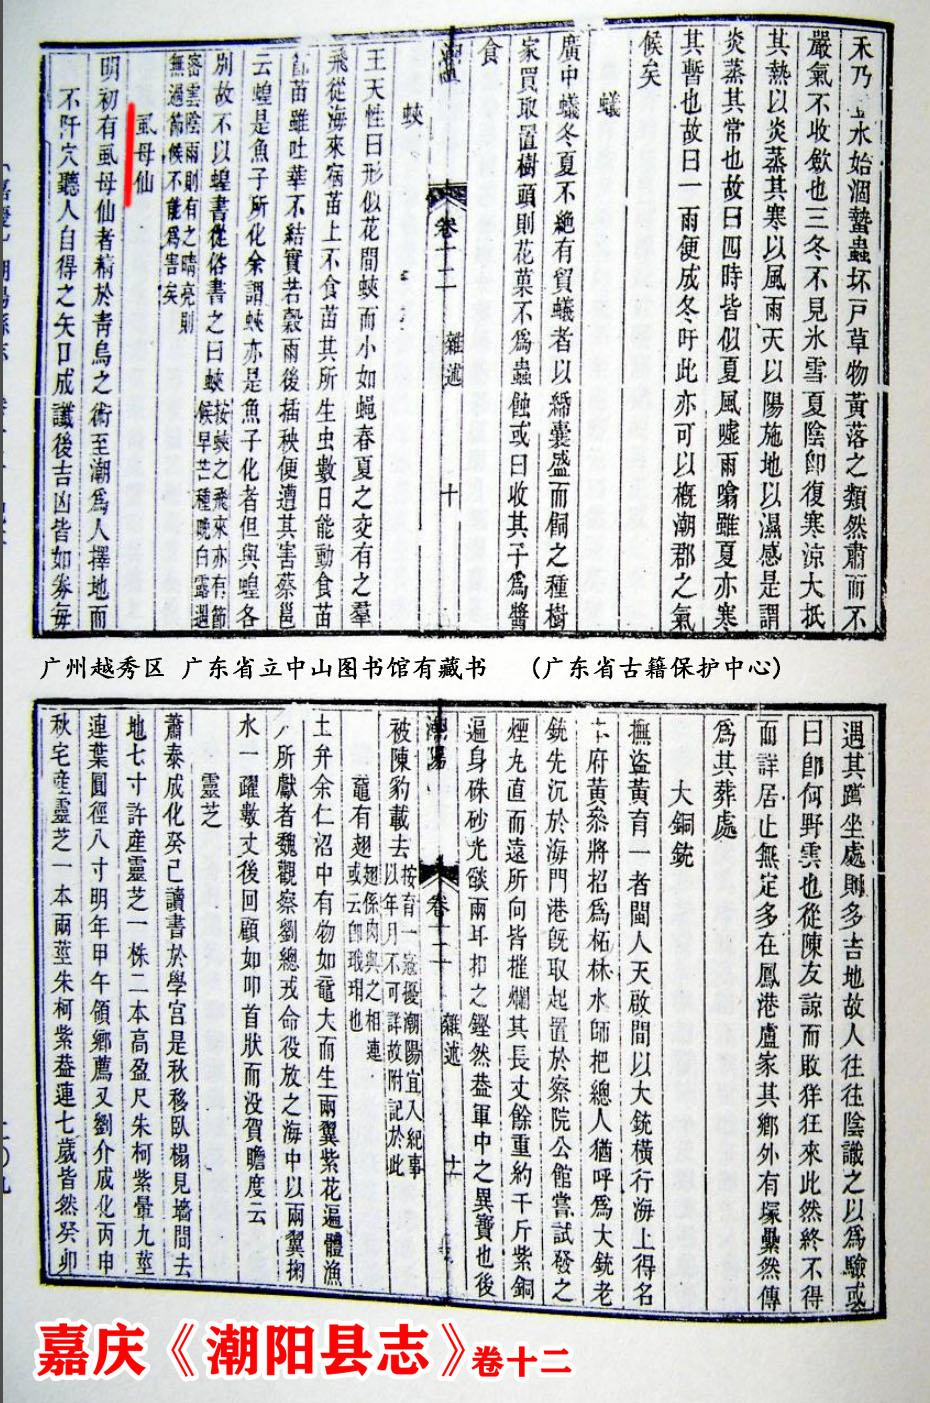 禾乃水始涸蟄蟲坏戸草物黃落之類然肅而不
嚴氣不收斂也三冬不見氷雪夏陰卽復寒涼大抵
其熱以炎蒸其寒以風雨天以陽施地以濕感是謂
炎蒸其常也故曰四時皆似夏風噓雨噏雖夏亦寒
其暫也故曰一雨便成冬吁此亦可以槪潮郡之氣
候矣
蟻
廣中蟻冬夏不絶有貿蟻者以締囊盛而飼之種樹
家買取置樹頭則花菓不爲蟲蝕或曰收其子爲醬
食
卷十二
雜述
十
蛺
王天性曰形似花間蛺而小如蝿春夏之交有之羣
飛從海來痐苗上不食苗其所生虫數日能動食苗
苗雖吐華不結實若穀雨後插秧便遭其害蔡邕
云蝗是魚子所化余謂蛺亦是魚子化者但與蝗各
別故不以蝗書從俗書之曰蛺
按蛺之飛來亦有節
候早芒種晚白露遇
密雲陰雨則有之晴亮則
無過節候不能爲害矣
虱母仙
明初有虱母仙者精於靑烏之術至潮爲人擇地而
不阡穴聽人自得之矢口成讖後吉凶皆如劵每
广州越秀区 广东省立中山图书馆有藏书 （广东省古籍保护中心）
遇其躋坐處則多吉地故人往往陰識之以爲驗或
曰卽何野雲也從陳友諒而敗佯狂來此然終不得
而詳居止無定多在鳳港盧家其鄉外有塚纍然傳
爲其葬處
大銅銃
撫盜黃育一者閩人天啟間以大銃橫行海上得名
府黃叅將招爲柘林水師把總人猶呼爲大銃老
銃先沉於海門港旣取起置於察院公館嘗試發之
煙丸直而遠所向皆摧爛其長丈餘重約千斤紫銅
遍身硃砂光燄兩耳扣之鏗然葢軍中之異寶也後
潮陽
卷十二
雜述
十一
被陳豹載去
按育一寇擾潮陽宜入紀事
以年月不可詳故附記於此
黿有翅
翅係肉與之相連
或云卽玳瑁也
土弁余仁沼中有物如黿大而生兩翼紫花遍體漁
所獻者魏觀察劉總戎命役放之海中以兩翼掬
水一躍數丈後回顧如叩首狀而没賀瞻度云
靈芝
蕭泰成化癸己讀書於學宫是秋移臥榻見墻間去
地七寸許産靈芝一株二本高盈尺朱柯紫暈九莖
連葉圓徑八寸明年甲午領鄉薦又劉介成化丙申
秋宅産靈芝一本兩莖朱柯紫葢連七歲皆然癸卯
嘉庆《潮阳县志》卷十二